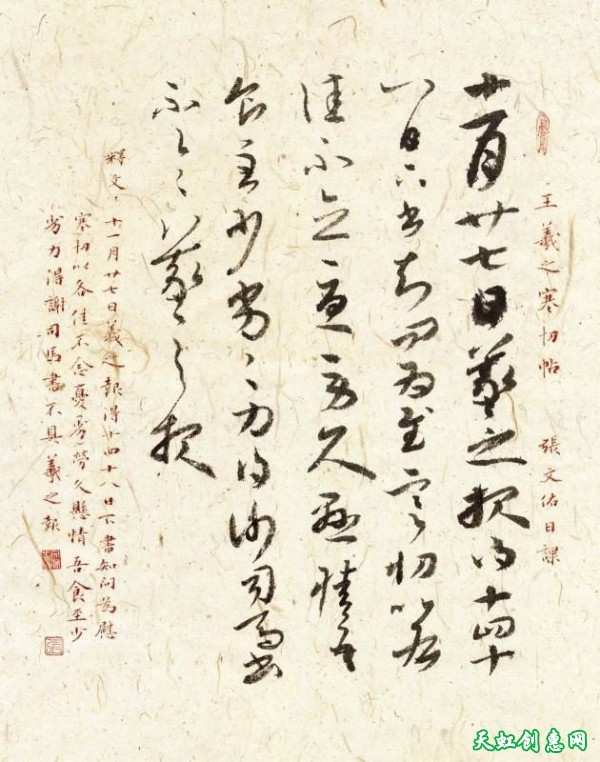 王羲之寒切帖 張文佑日課
十一月廿七日羲之報得十四十
八日二書知問為慰寒切比各
佳不念憂勞久懸情吾
食至少劣劣力因謝司馬書
不一一羲之報
釋文，十一月廿七日羲之報得十四十八日下書知問為慰
寒切以各佳不念憂勞久懸情吾食至少
劣力得謝司馬書不具羲之報
天虹创意网